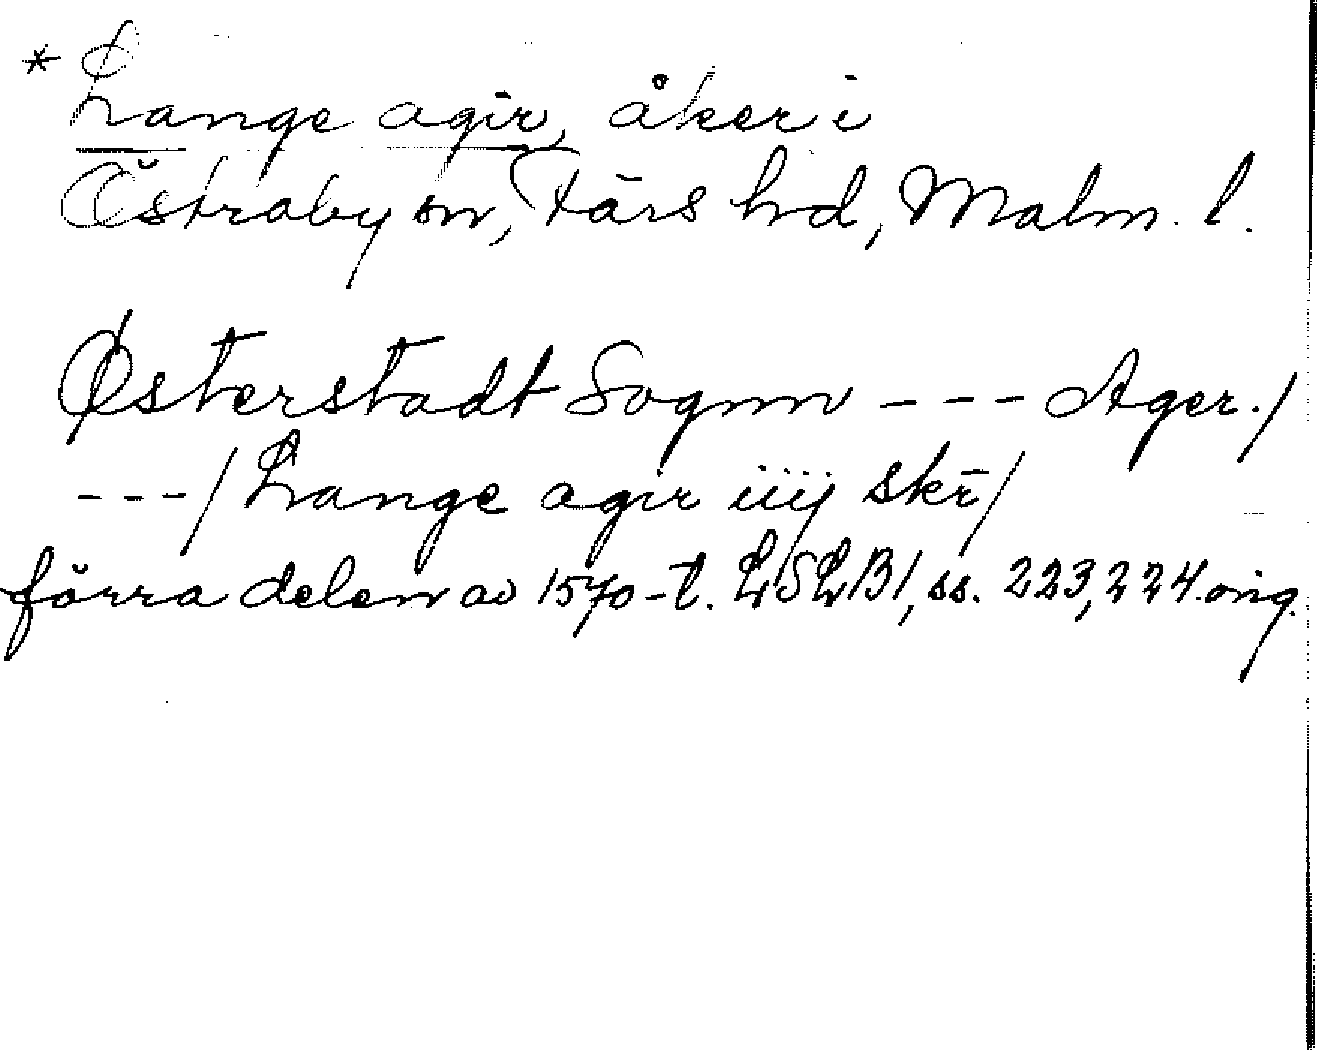 * Lange agir, åker i
Östraby sn, Färs hd, Malm. l.
Østerstadt Sognn --- Ager./
---/ Lange agir iiij skr̄/
förra delen av 1570-t. LSLB1, ss. 223, 224. orig.